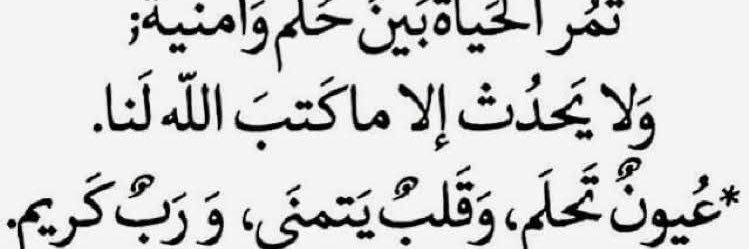 تَمُر الحَياة بَينَ حُلم وَأمنية;
وَلا يَحدُث إلا ما كَتبَ اللّه لَنا.
*عُيونٌ تَحلَم، وَقَلبٌ يَتمنَى، وَ رَبٌ كَريم.